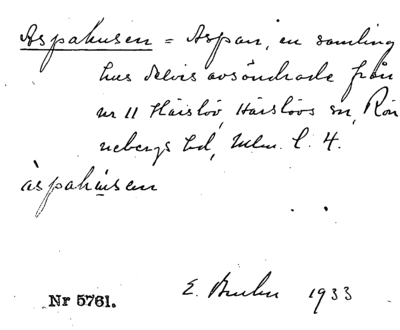 Aspahusen = Aspan, en samling
hus delvis avsöndrade från
nr 11 Häislöv, Häislövs sn, Rön
nebergs hd, Mlm. l. 4.
àspahúsen
E. Bruhn 1933
Nr 5761.